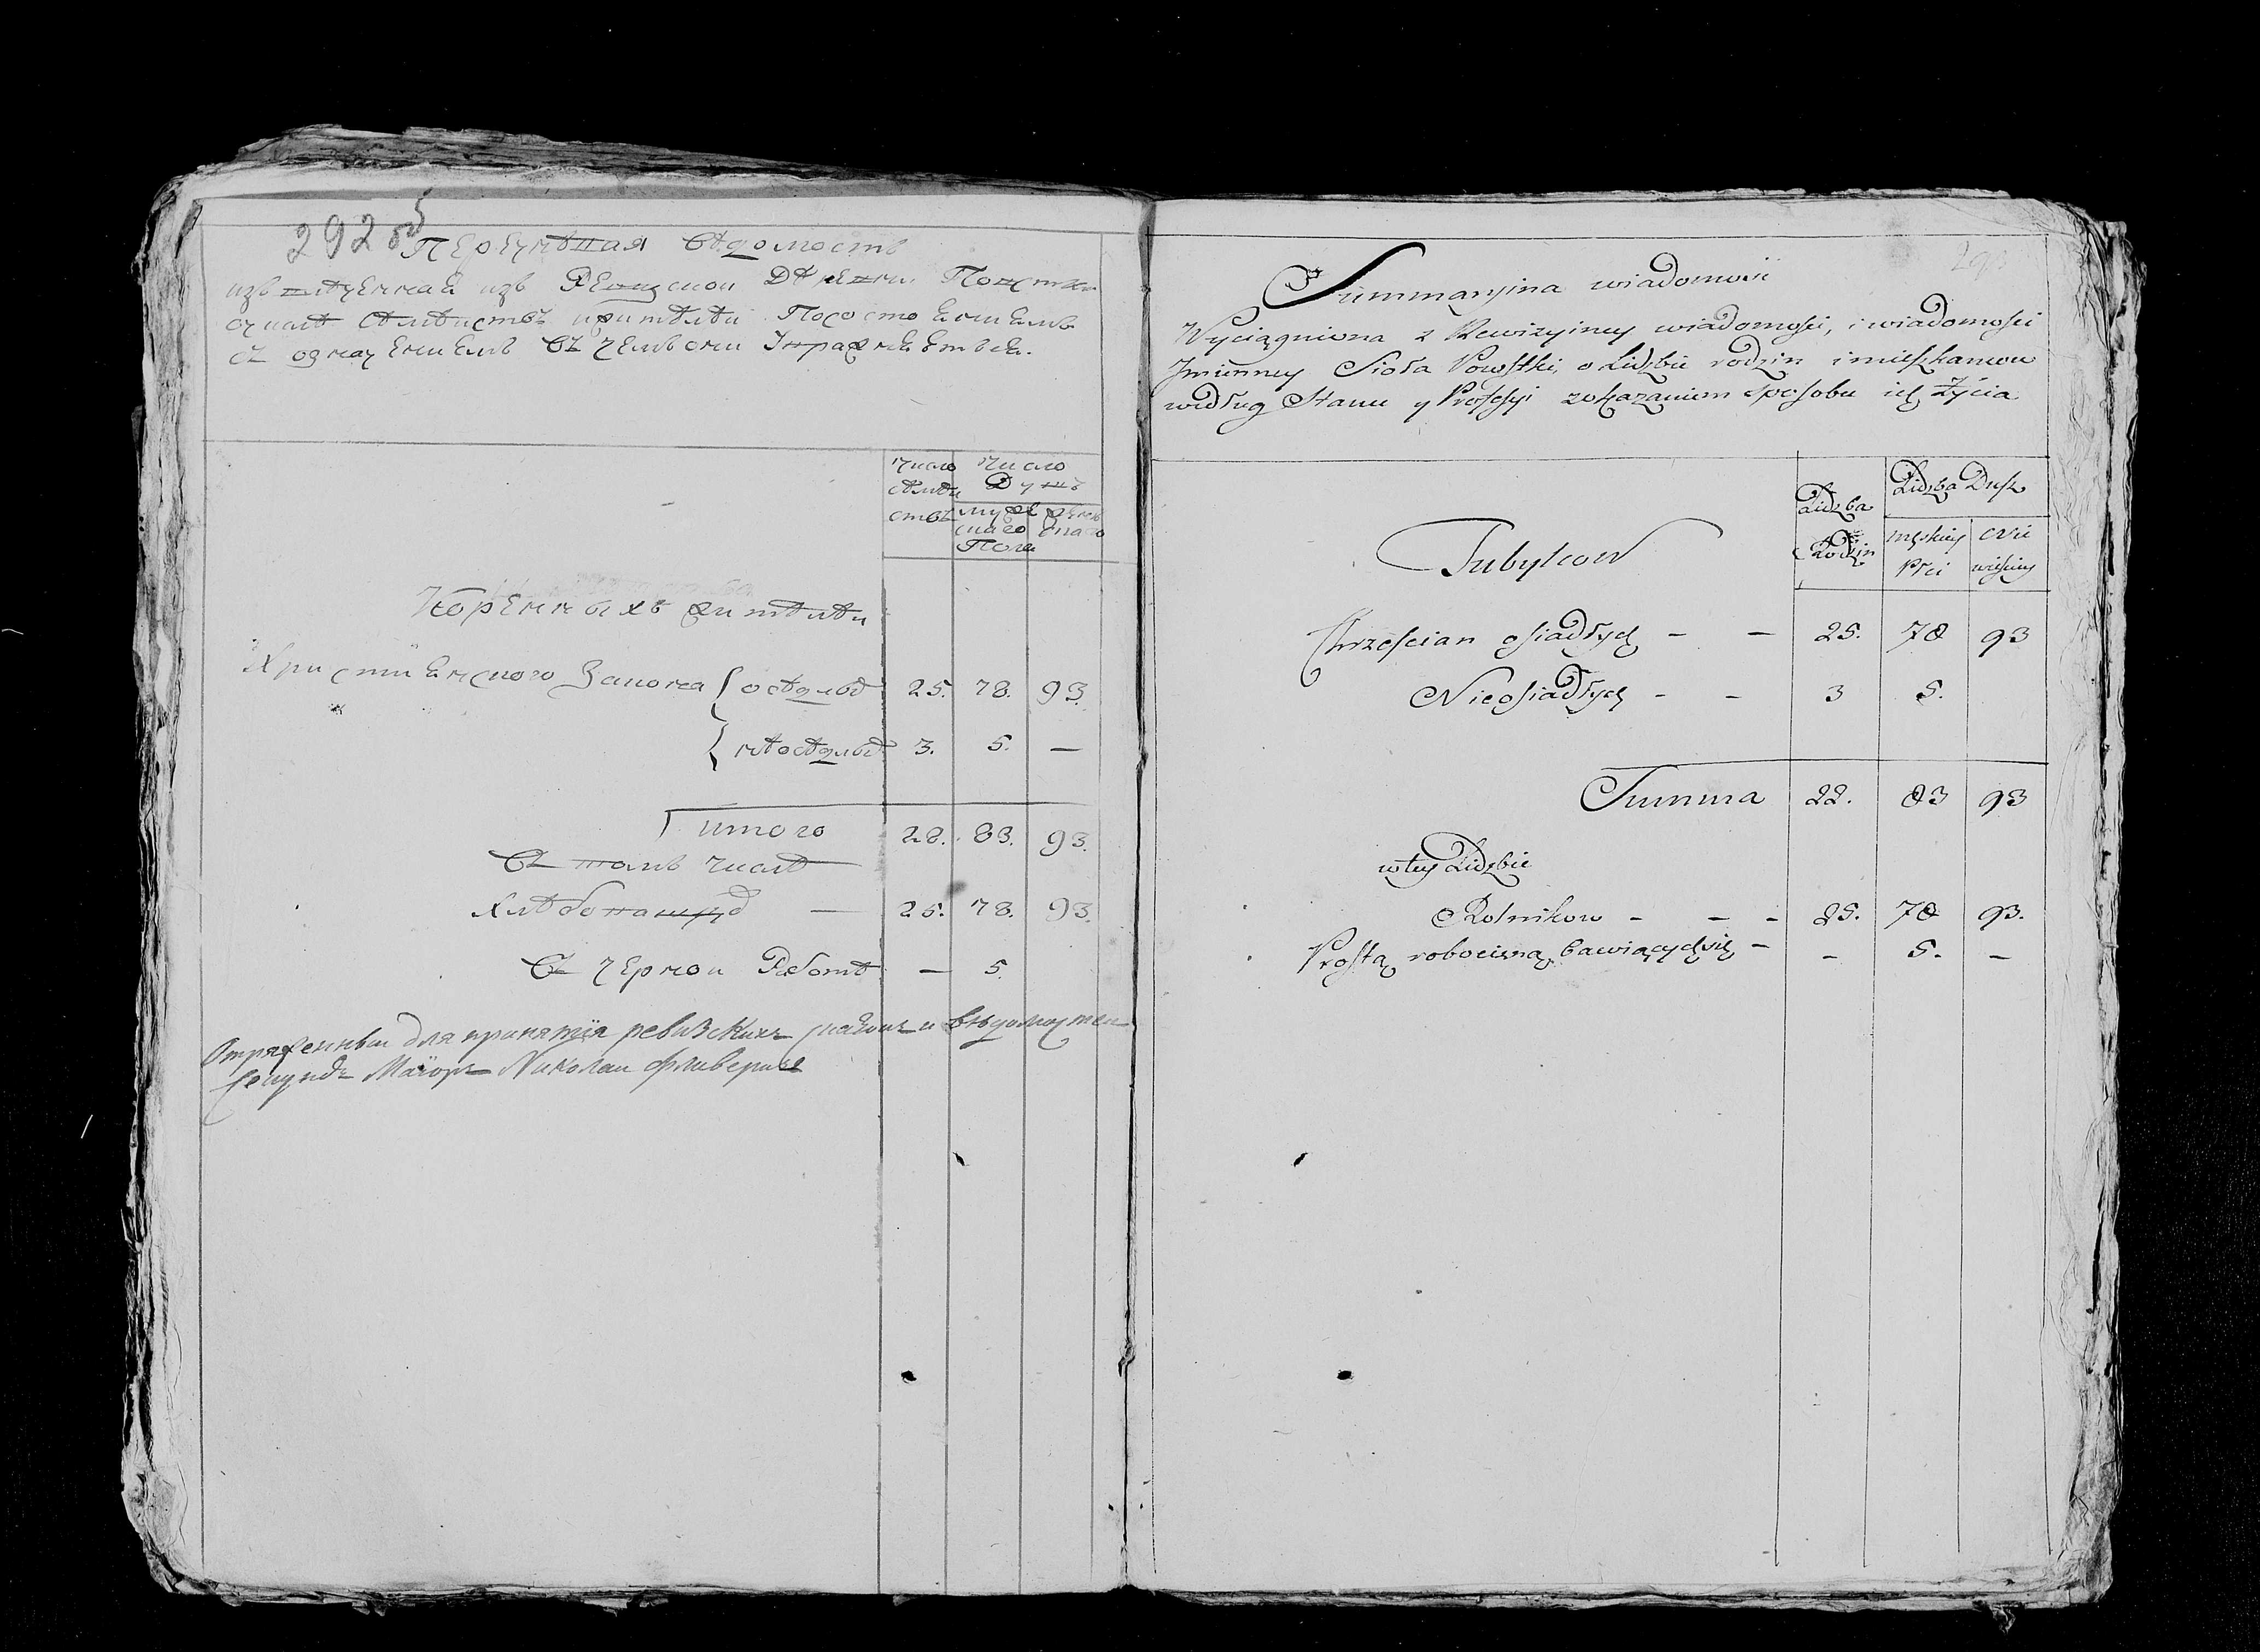 292 об
Перечневая ведомость
изъ ревизской деревни Повстки
о числе семействъ и жителей По состоянiямъ
съ означенiемъ въ чемъ они упражняются.
число
семей
ствъ
число
душъ
муже
скаго
Пола
женъ
скаго
Коренныхъ жителей
Христианского Закона оседлые 25. 78. 93.
неоседлые 3. 5. —
итого 28. 83. 93.
Въ томъ числе
хлебопашцы — 25. 78. 93.
Въ черной Работе — 5.
Отряженный для принятiя ревизскихъ сказокъ и ведомостей
секундъ Маiоръ Николай
Summaryina wiadomość
Wyciągniona z Rewizyiney wiadomości, i wiadomości
Jmienney Sioła Powstki, o Liczbie rodzin i mieszkancow
według Stanu y Professyi zokazaniem sposobu ich Życia
Liczba
Rodzin
Liczba Dusz
męskiey
Płci
Tubylcow
Chrzescian osiadłych - - 25. 78 93
Nieosiadłych - - 3 5.
Summa 28. 83 93
wtey Liczbie
Rolnikow - - - 25. 78 93.
Prostą robocizną bawiących się - - 5. -